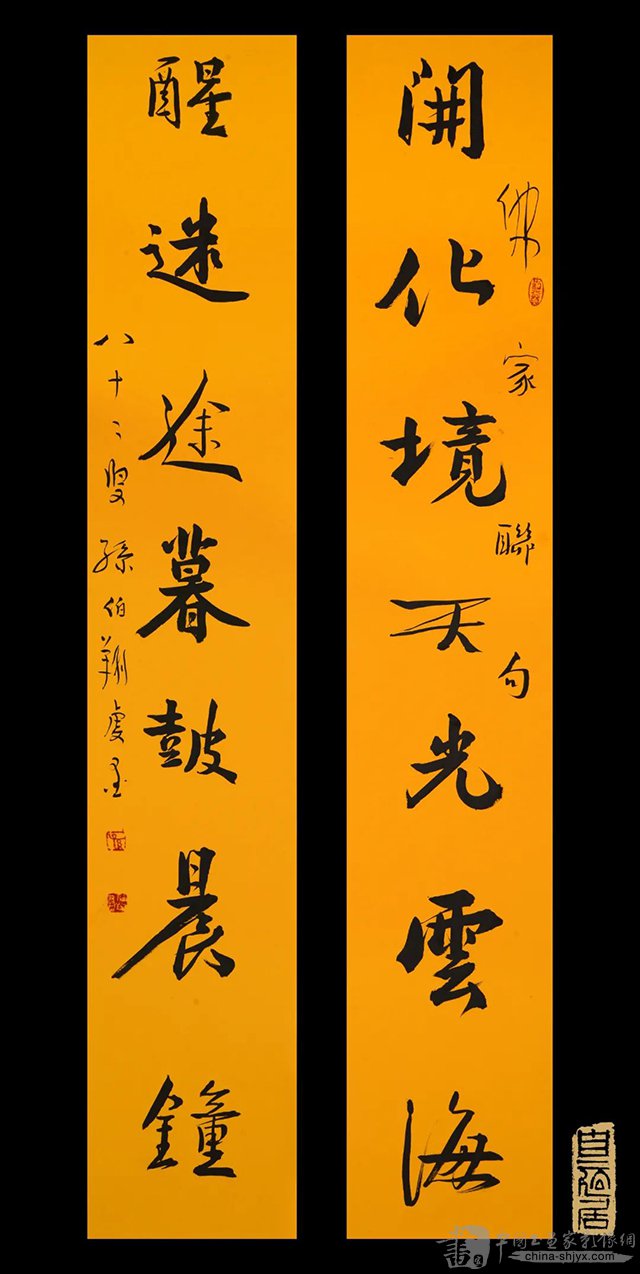 開化境天光雲海
佛家聯句
醒迷途暮鼓晨鐘
八十二叟孫伯翔虔墨
中國書画家影像網
china-shjyx.com